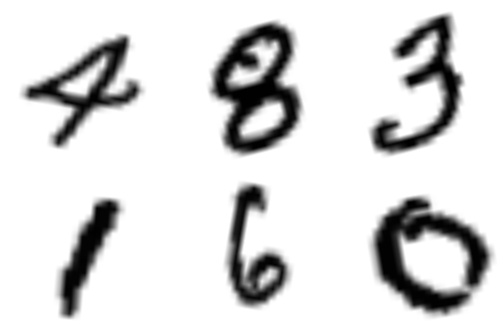 4 8 3
1 6 0